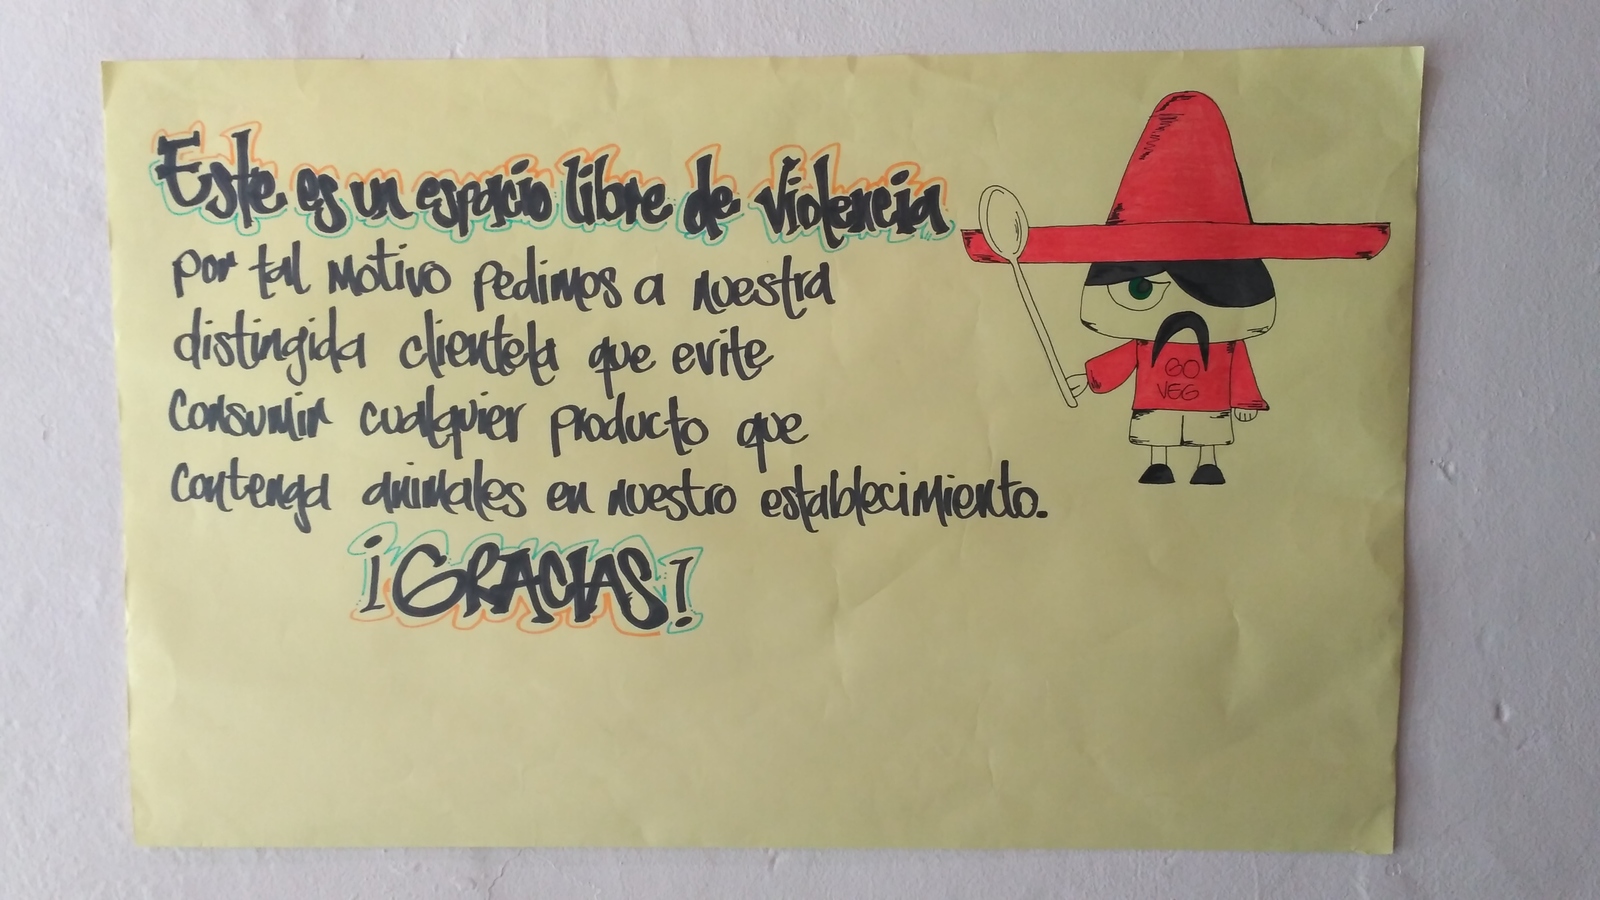 Este es un espacio libre de violencia
por tal motivo pedimos a nuestra
distingida clientela que evite
consumir cualquier producto que
contenga animales en nuestro establecimiento.
¡GRACIAS!
GO
VEG